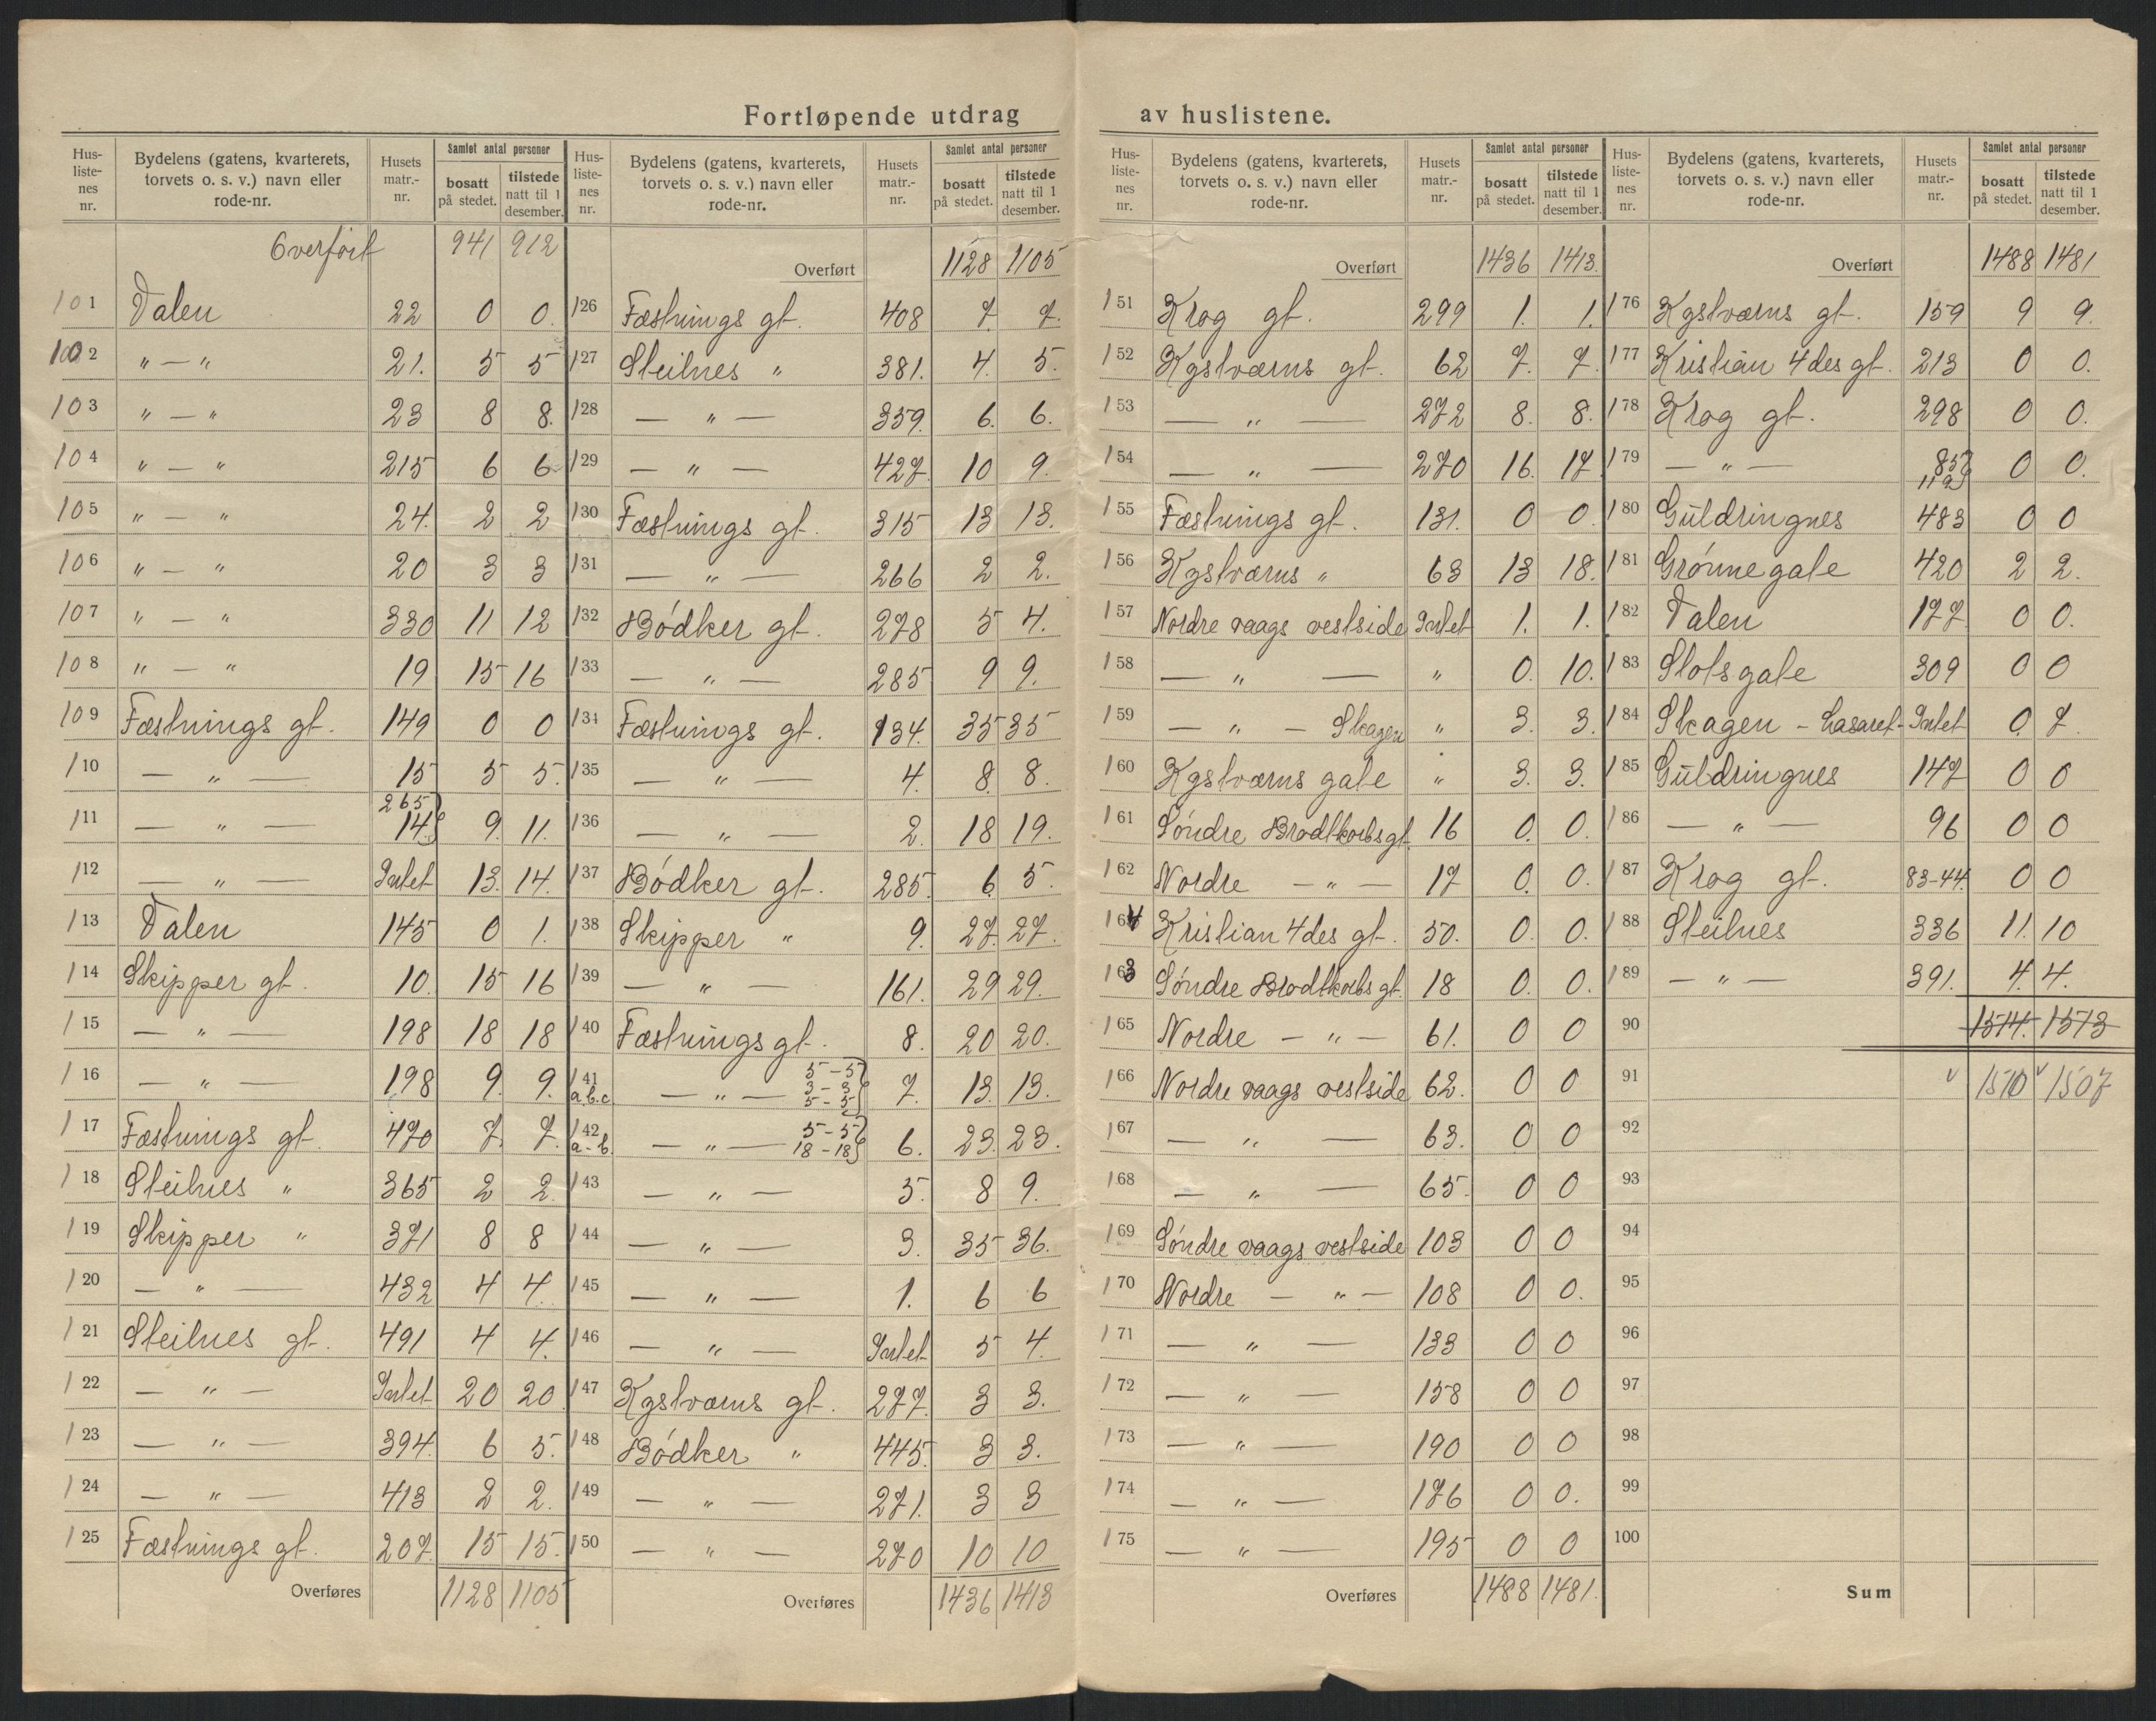 Fortløpende utdrag av huslistene.
Hus- liste- nes nr. | Bydelens (gatens, kvarterets, torvets o. s. v.) navn eller rode-nr. | Husets matr.- nr. | Samlet antal personer bosatt på stedet. | tilstede natt til 1 desember.
Overført 941 912
101 Dalen 22 0 0
102 " — " 21. 5 5
103 " — " 23 8 8.
104 " — " 215 6 6
105 " — " 24. 2 2
106 " — " 20 3 3
107 " — " 330 11 12
108 " — " 19 15 16
109 Fæstnings gt. 149 0 0
110 — " — 15 5 5.
111 — " — 265 14. 9. 11.
112 — " — Intet 13. 14.
113 Dalen 145 0 1.
114 Skipper gt. 10. 15 16
115 — " — 198 18 18
116 — " — 198 9. 9.
117 Fæstnings gt. 470 7. 7.
118 Steilnes " 365 2 2.
119 Skipper " 371 8 8
120 — " — 432 4 4.
121 Steilnes gt. 491 4 4.
122 — " — Intet 20 20
123 — " — 394. 6 5.
124 — " — 413 2 2.
125 Fæstnings gt. 207. 15 15.
Overføres 1128 1105
Hus- liste- nes nr. | Bydelens (gatens, kvarterets, torvets o. s. v.) navn eller rode-nr. | Husets matr.- nr. | Samlet antal personer bosatt på stedet. | tilstede natt til 1 desember.
Overført 1128 1105
126 Fæstnings gt. 408 7. 7.
127 Steilnes " 381. 4. 5.
128 — " — 359. 6. 6.
129 — " — 427. 10 9.
130 Fæstnings gt. 315 13 13.
131 — " — 266 2 2.
132 Bódker gt. 278 5 4.
133 — " — 285 9 9.
134 Fæstnings gt. 134. 35 35
135 — " — 4. 8. 8.
136 — " — 2. 18 19.
137 Bódker gt. 285. 6. 5.
138 Skipper " 9. 27. 27.
139 — " — 161. 29 29.
140 Fæstnings gt. 8. 20 20.
141 a.b.c — " — 5-5 3-3 5-5 7. 13. 13.
142 a-b. — " — 5-5 18-18 6. 23. 23.
143 — " — 5. 8 9.
144 — " — 3. 35 36.
145 — " — 1. 6 6
146 — " — Intet 5 4.
147 Kgstværns gt. 277. 3 3.
148 Bódker " 445. 3 3.
149 — " — 271. 3 3
150 — " — 270 10 10
Overføres 1436 1413
Hus- liste- nes nr. | Bydelens (gatens, kvarterets, torvets o. s. v.) navn eller rode-nr. | Husets matr.- nr. | Samlet antal personer bosatt på stedet. | tilstede natt til 1 desember.
Overført 1436 1413.
151 Krog gt. 299 1. 1.
152 Kgstværns gt. 62 7. 7.
153 — " — 272 8. 8.
154 — " — 270 16. 17.
155 Fæstnings gt. 131. 0 0.
156 Kgstværns " 63 13 18.
157 Nordre vaags vestside Intet 1. 1.
158 — " — " 0. 10.
159 — " — Skagen " 3. 3.
160 Kgstværns gate " 3. 3.
161 Sóndre Brodtkorbs gt. 16 0. 0.
162 Nordre — " — 17 0. 0.
164 Kristian 4des gt. 50. 0. 0.
163 Sóndre Brodtkorbs gt. 18 0. 0.
165 Nordre — " — 61. 0 0
166 Nordre vaags vestside 62. 0 0
167 — " — 63. 0 0
168 — " — 65. 0 0
169 Sóndre vaags vestside 103 0 0
170 Nordre — " — 108 0 0.
171 — " — 133 0 0
172 — " — 158 0 0
173 — " — 190 0 0
174 — " — 176 0 0.
175 — " — 195 0 0
Overføres 1488 1481.
Hus- liste- nes nr. | Bydelens (gatens, kvarterets, torvets o. s. v.) navn eller rode-nr. | Husets matr.- nr. | Samlet antal personer bosatt på stedet. | tilstede natt til 1 desember.
Overført 1488 1481
176 Kgstværns gt. 159 9 9.
177 Kristian 4des gt. 213 0 0.
178 Krog gt. 298 0 0.
179 — " — 85 0 0.
180 Guldringnes 483 0 0
181 Grónnegate 420 2 2.
182 Dalen 177 0 0.
183 Slotsgate 309 0 0
184 Skagen - Lasaret - Intet 0. 7.
185 Guldringnes 147 0 0
186 — " — 96 0 0
187 Krog gt. 83-44. 0 0
188 Steilnes 336 11. 10
189 — " — 391. 4. 4.
90 1514. 1513
91 1510 1507
92
93
94
95
96
97
98
99
100
Sum